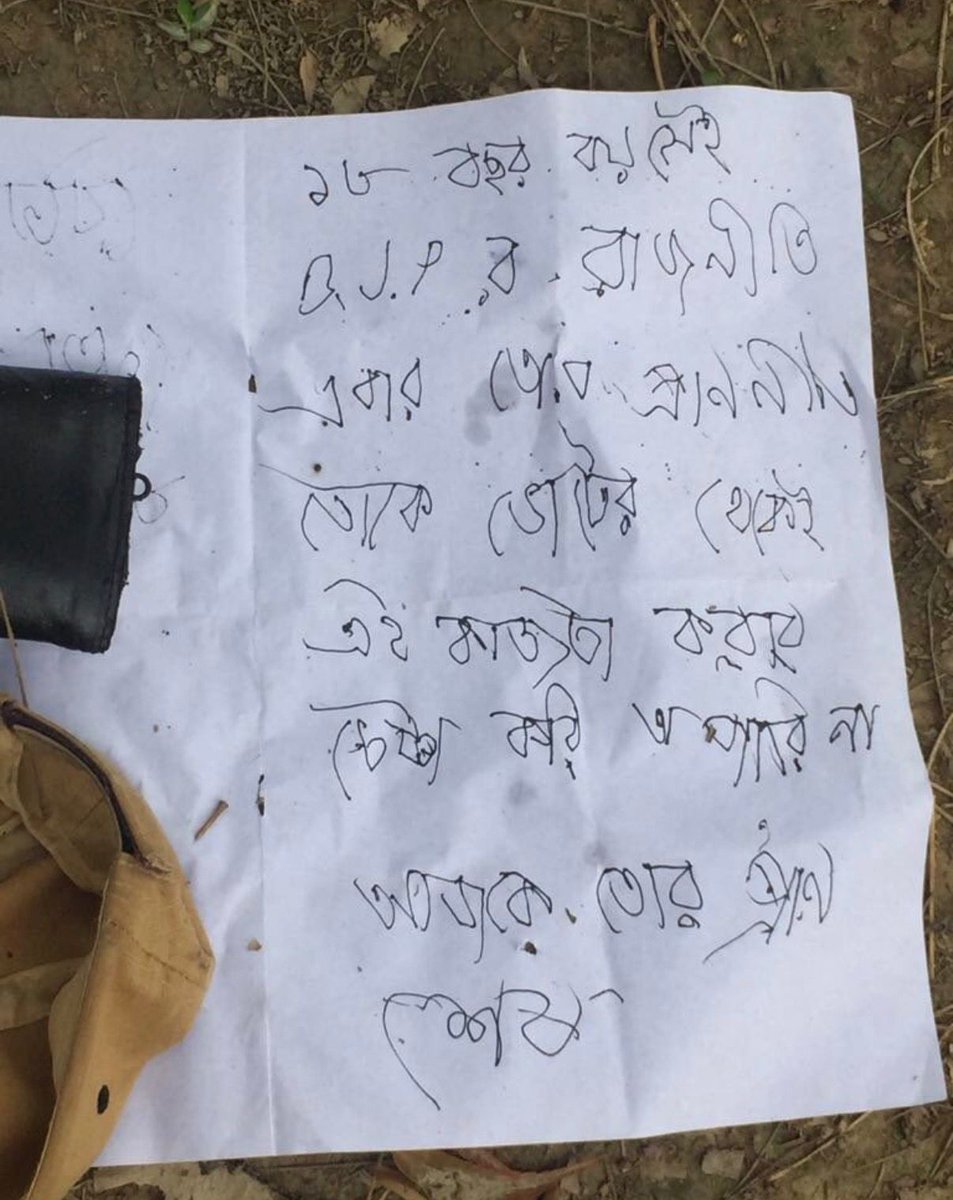 ১৮ বছর বয়সেই
B.J.P র রাজনীতি
এবার তোর প্রাননীতি
তোকে ভোটের থেকেই
এই কাজটা করবার
চেষ্টা করি তা পারি না
আজকে তোর প্রান
শেষ